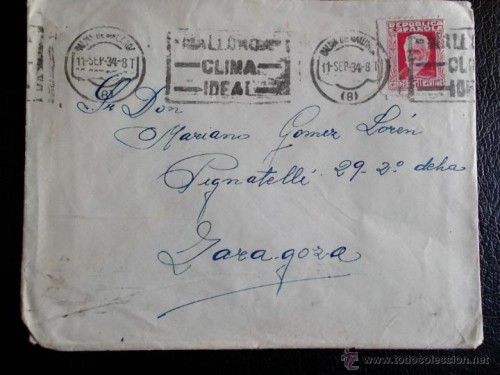 PALMA DE MALLORCA
11-SEP.34-8T
(8)
MALLORCA
CLIMA
IDEAL
PALMA DE MALLORCA
11-SEP.34-8T
(8)
REPÚBLICA
ESPAÑOLA
Sr Don
Mariano Gomez Lorén
Pignatelli 29-2º dcha
Zaragoza
todocoleccion
www.todocoleccion.net